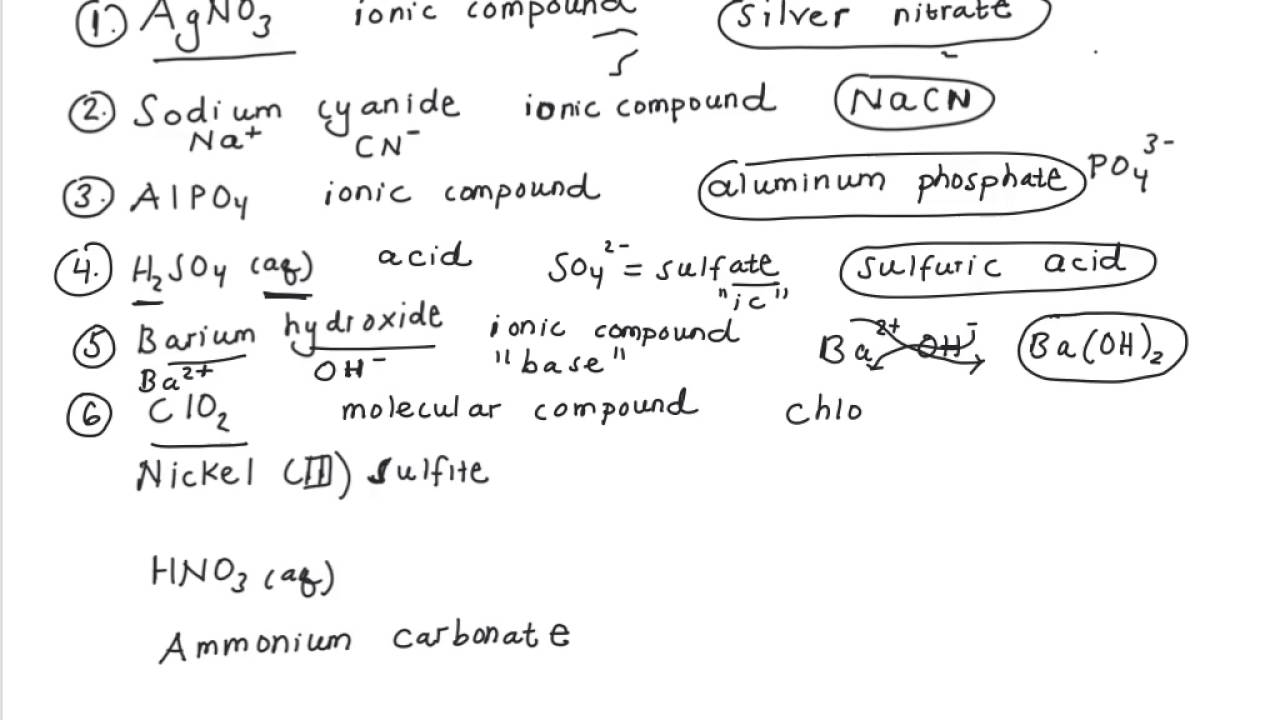 1. AgNO3 ionic compound silver nitrate
2. Sodium cyanide ionic compound NaCN
Na+ CN-
3. AlPO4 ionic compound aluminum phosphate PO4 3-
4. H2SO4 (aq) acid SO4 2- = sulfate sulfuric acid
"ic"
5. Barium hydroxide ionic compound Ba 2+ OH- Ba(OH)2
Ba2+ OH- "base"
6 ClO2 molecular compound chlo
Nickel (III) sulfite
HNO3 (aq)
Ammonium carbonate